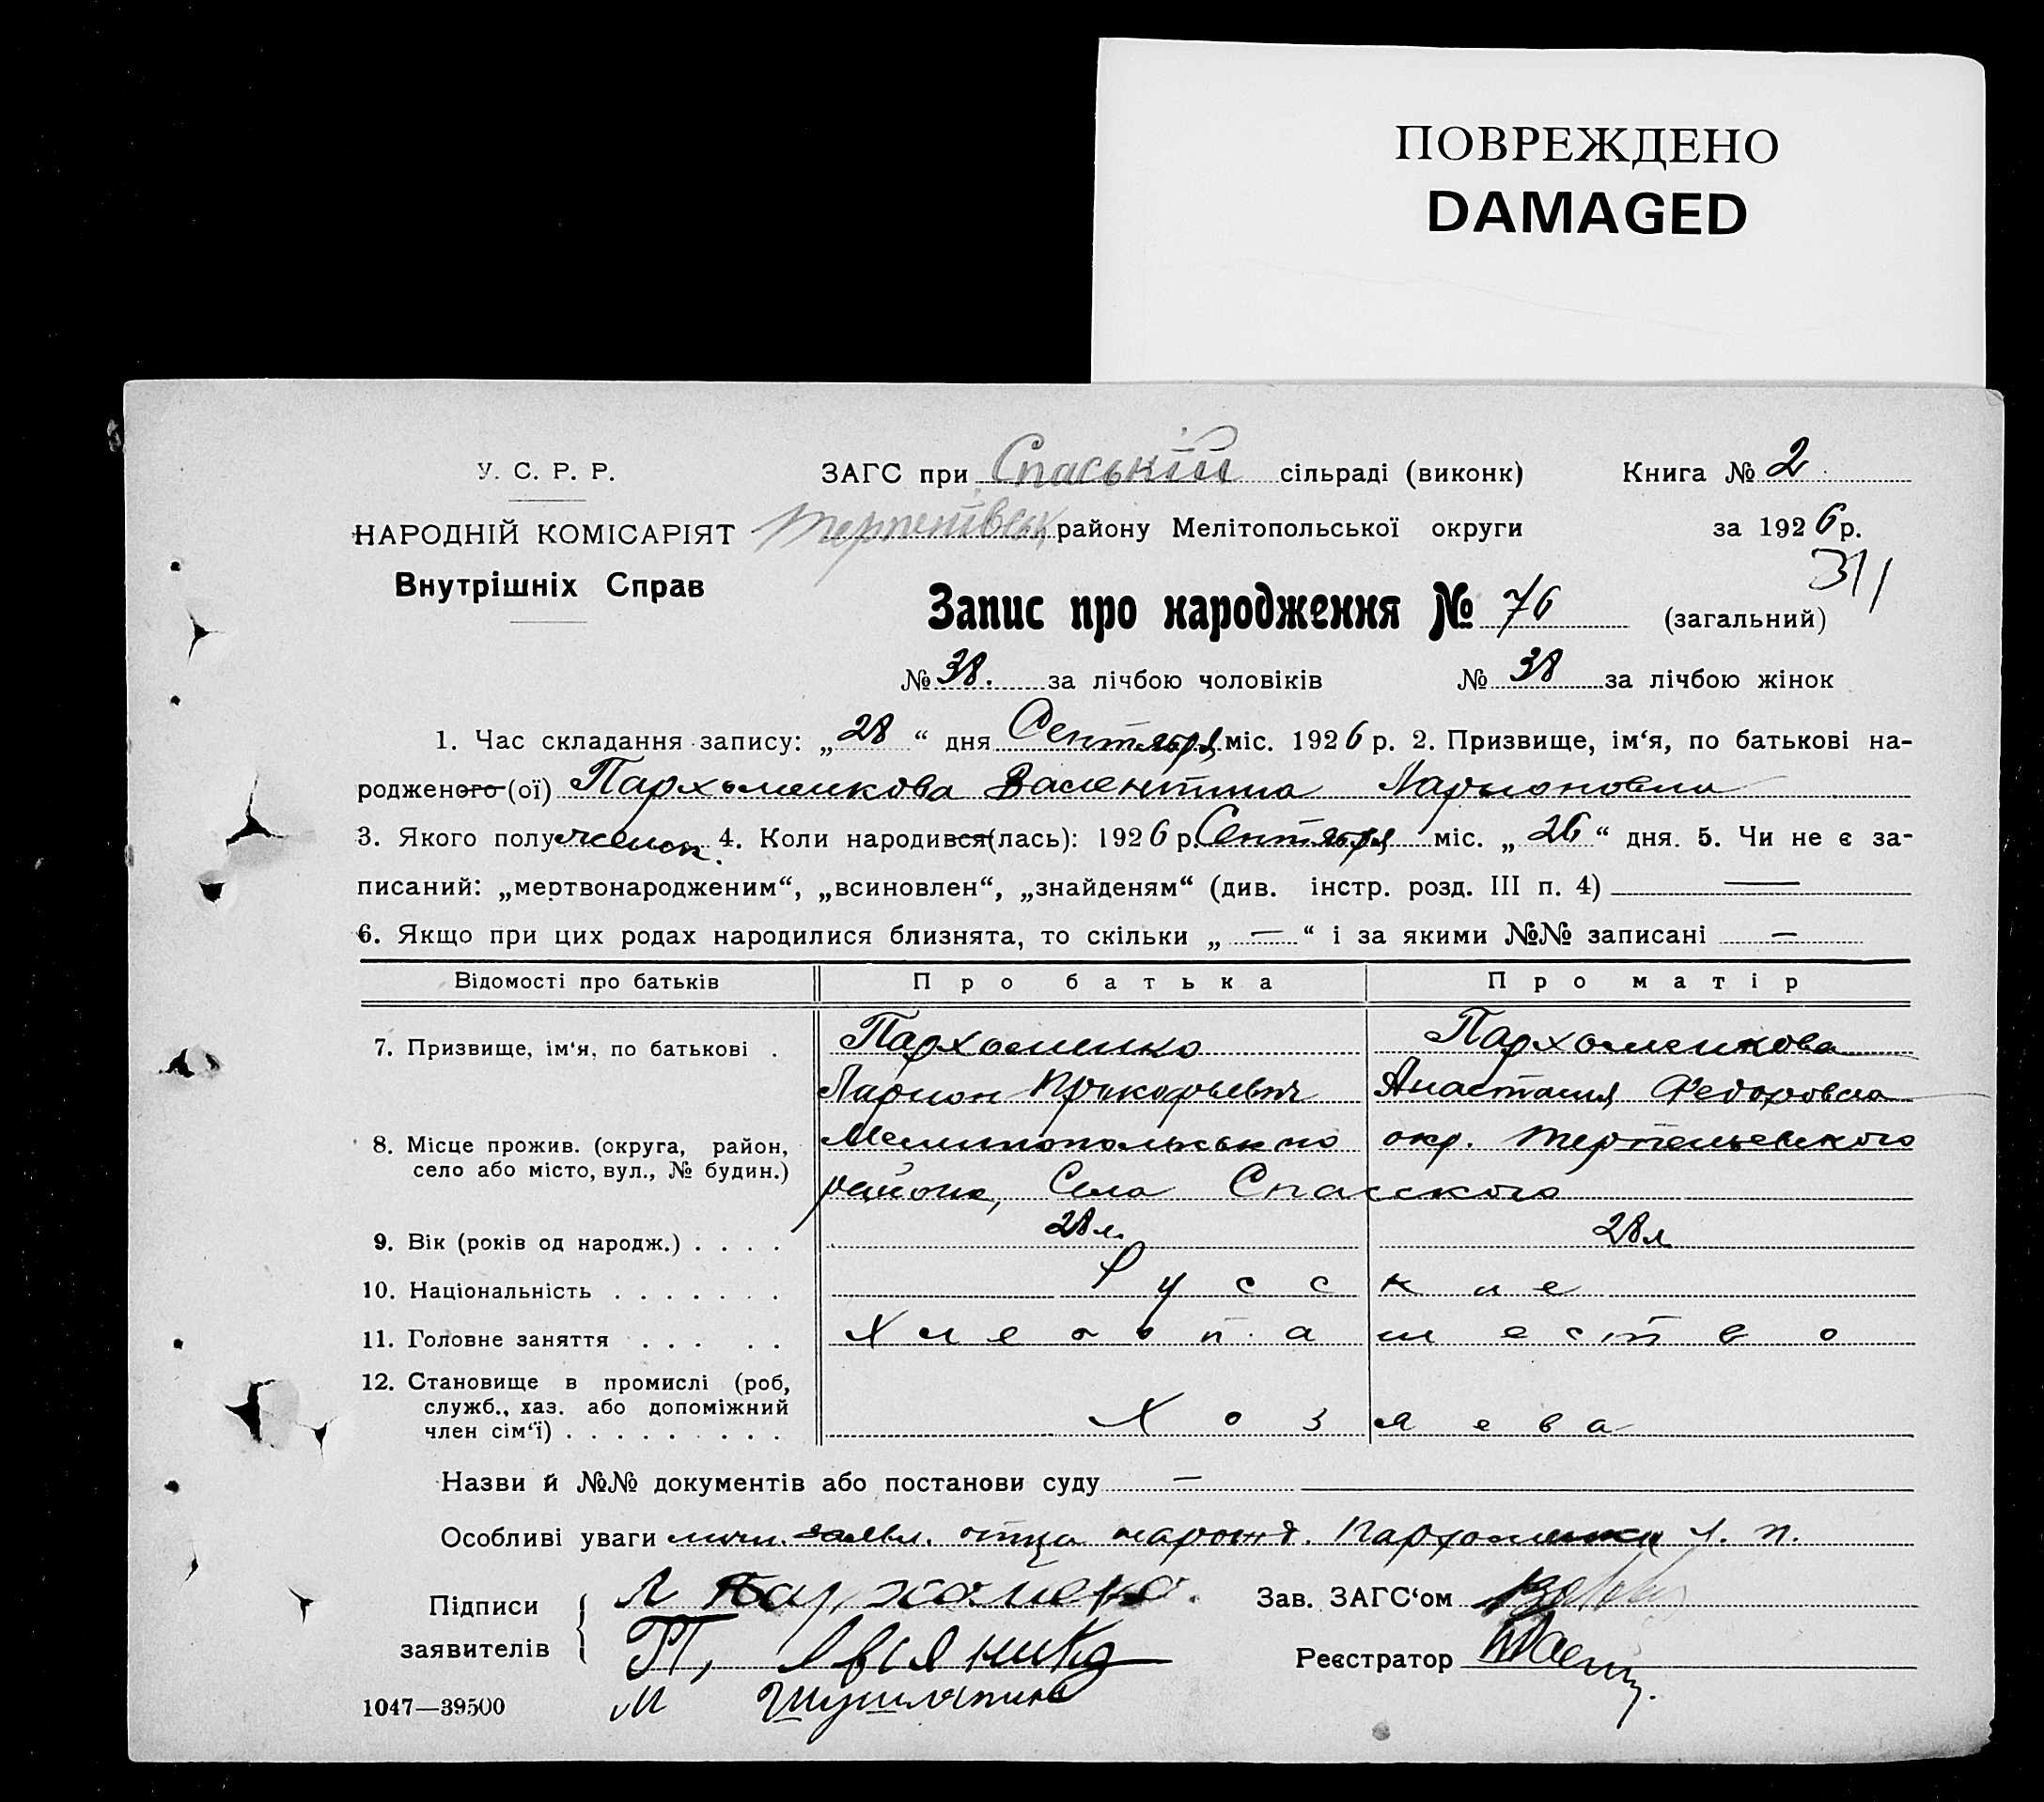 ПОВРЕЖДЕНО
DAMAGED
У. С. Р. Р.
ЗАГС при Спаській сільраді (виконк)
Книга № 2
НАРОДНІЙ КОМІСАРІЯТ
Терпенівськ району Мелітопольської округи
за 1926 р.
311
Внутрішніх Справ
Запис про народження № 76 (загальний)
№ 38. за лічбою чоловіків № 38 за лічбою жінок
1. Час складання запису: „28“ дня Сентября міс. 1926 р. 2. Призвище, ім‘я, по батькові на-
родженого (ої) Пархоменкова Валентина Ларионовна
3. Якого полу женск. 4. Коли народився (лась): 1926 р. Сентября міс. „26“ дня. 5. Чи не є за-
писаний: „мертвонародженим“, „всиновлен“, „знайденям“ (див. інстр. розд. III п. 4) —
6. Якщо при цих родах народилися близнята, то скільки „—“ і за якими №№ записані —
Відомості про батьків Про батька Про матір
7. Призвище, ім‘я, по батькові . Пархоменко Пархоменкова
Ларион Прокофьевич Анастасия Федоровна
8. Місце прожив. (округа, район, Мелитопольського окр. Терпеньевского
село або місто, вул., № будин.) района, Села Спасского
9. Вік (років од народж.) . . . . 28 л. 28 л
10. Національність . . . . . . . Русские
11. Головне заняття . . . . . Хлебопашество
12. Становище в промислі (роб,
служб., хаз. або допоміжний
член сім‘ї) . . . . . . . . . Хозяева
Назви й №№ документів або постанови суду —
Особливі уваги заявл. отца Пархоменка Л. П.
Підписи Л Пархоменко. Зав. ЗАГС‘ом
заявителів П, Реєстратор
1047—39500 М